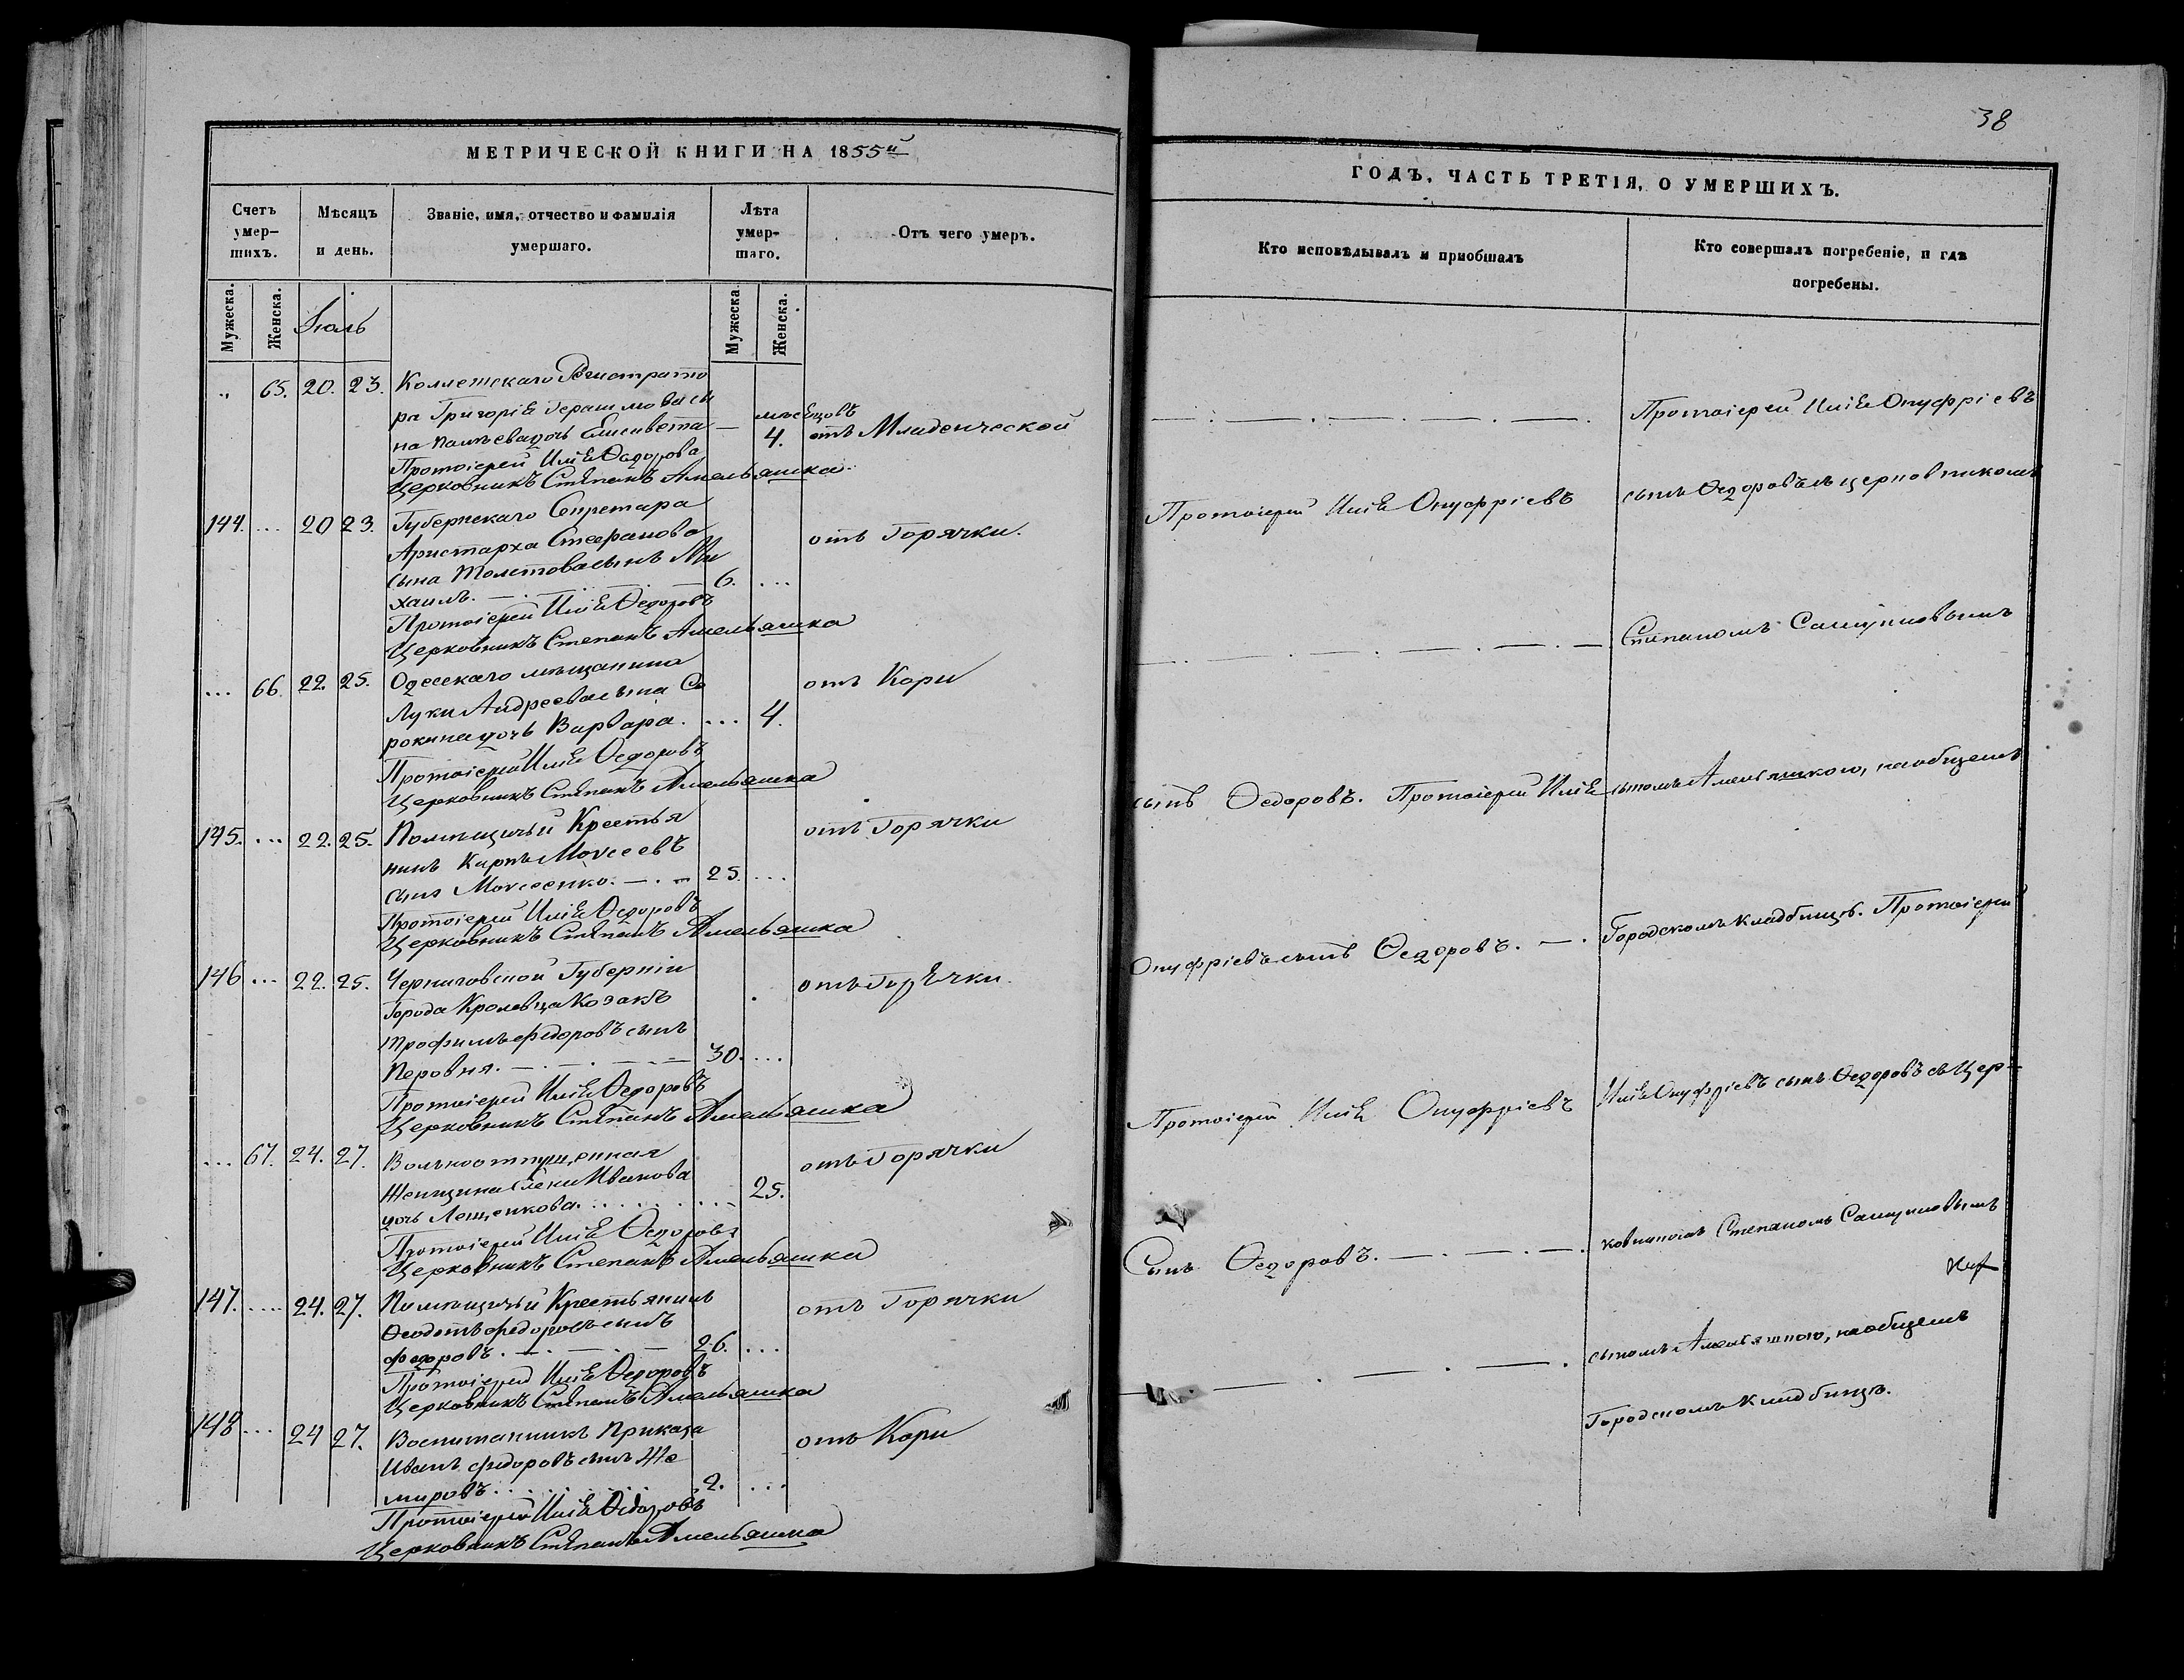 МЕТРИЧЕСКОЙ КНИГИ НА 1855й
Счетъ умер-
шихъ.
Мѣсяцъ
и день.
Званіе, имя, отчество и фамилія
умершаго.
Лѣта
умер-
шаго.
Отъ чего умеръ.
Мужеска.
Женска.
Іюль
Мужеска
Женска.
„ 65. 20. 23. Коллежскаго Регистрато
ра Григорія Герасимова сы
мѣсяцовъ
дочь Елисавета — 4. отъ Младенческой
Протоіерей Илія Ѳедоровъ
Церковникъ Стѣпанъ Амельяшка
144. ... 20 23. Губернскаго Секретара
отъ Горячки.
Аристарха Стефанова
сына Толстова сынъ Ми
хаилъ. — . — . — 6. ...
Протоіерей Илія Ѳедоровъ
Церковникъ Степанъ Амельяшка
... 66. 22. 25. Одесскаго мѣщанина
отъ Кори
Луки Андреева сына Со
рокина дочь Варвара. ... 4.
Протоіерей Илія Ѳедоровъ
Церковникъ Стѣпанъ Амельяшка
145. ... 22. 25. Помѣщичьи Крестья
отъ Горячки
нинъ Карпъ Моѵсеевъ
сынъ Моѵсеенко. — . — 25. ...
Протоіерей Илія Ѳедоровъ
Церковникъ Стѣпанъ Амельяшка
146 ... 22. 25. Черниговской Губерніи
отъ Горячки.
Города Кролевца Козакъ
Трофимъ Федоровъ сынъ
Перовня. — . — . — 30. ...
Протоіерей Илія Ѳедоровъ
Церковникъ Стѣпанъ Амельяшка
... 67. 24. 27. Вольноотпущенная
отъ Горячки
Женщина Елена Иванова
дочь Лещенкова. ....... 25.
Протоіерей Илія Ѳедоровъ
Церковникъ Степанъ Амельяшка
147. .... 24. 27. Помѣщичьи Крестьянинъ
отъ Горячки
Ѳеодотъ Федоровъ сынъ
Федоровъ. — . — . — 26. ...
Протоіерей Илія Ѳедоровъ
Церковникъ Стѣпанъ Амельяшка
148 ... 24 27. Воспитанникъ Приказа
отъ Кори
Иванъ Федоровъ сынъ
мировъ........ 2. ...
Протоіерей Илія Ѳедоровъ
Церковникъ Стѣпанъ Амельяшка
38
ГОДЪ, ЧАСТЬ ТРЕТІЯ, О УМЕРШИХЪ.
Кто исповѣдывалъ и приобщалъ
Кто совершалъ погребеніе, и гдѣ
погребены.
— . — . — . — . — .
Протоіерей Илія Онуфріевъ
Протоіерей Илія Онуфріевъ
сынъ Ѳедоровъ съ церковникомъ
— . — . — . — . — . —
Степаномъ Самуиловымъ
сынъ Ѳедоровъ. Протоіерей Илія
сыномъ Амельяшкою, на общемъ
Онуфріевъ сынъ Ѳедоровъ. — .
Городскомъ кладбищѣ. Протоіерей
Протоіерей Илія Онуфріевъ
Илія Онуфріевъ сынъ Ѳедоровъ съ Цер-
Сынъ Ѳедоровъ. — . — . — .
ковникомъ Степаномъ Самуиловымъ
— . — . — . — .
сыномъ Амельяшкою, на общемъ
Городскомъ Кладбищѣ.